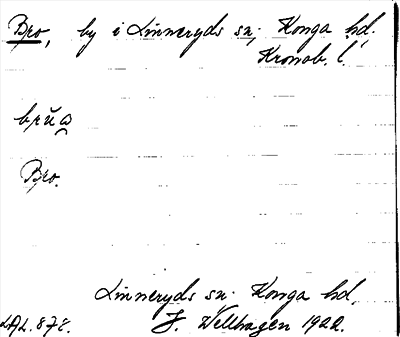 Bro, by i Linneryds sn, Konga hd.
Kronob. l.
Bro.
Linneryds sn. Konga hd.
LAL. 878. J. Wellhagen 1922.